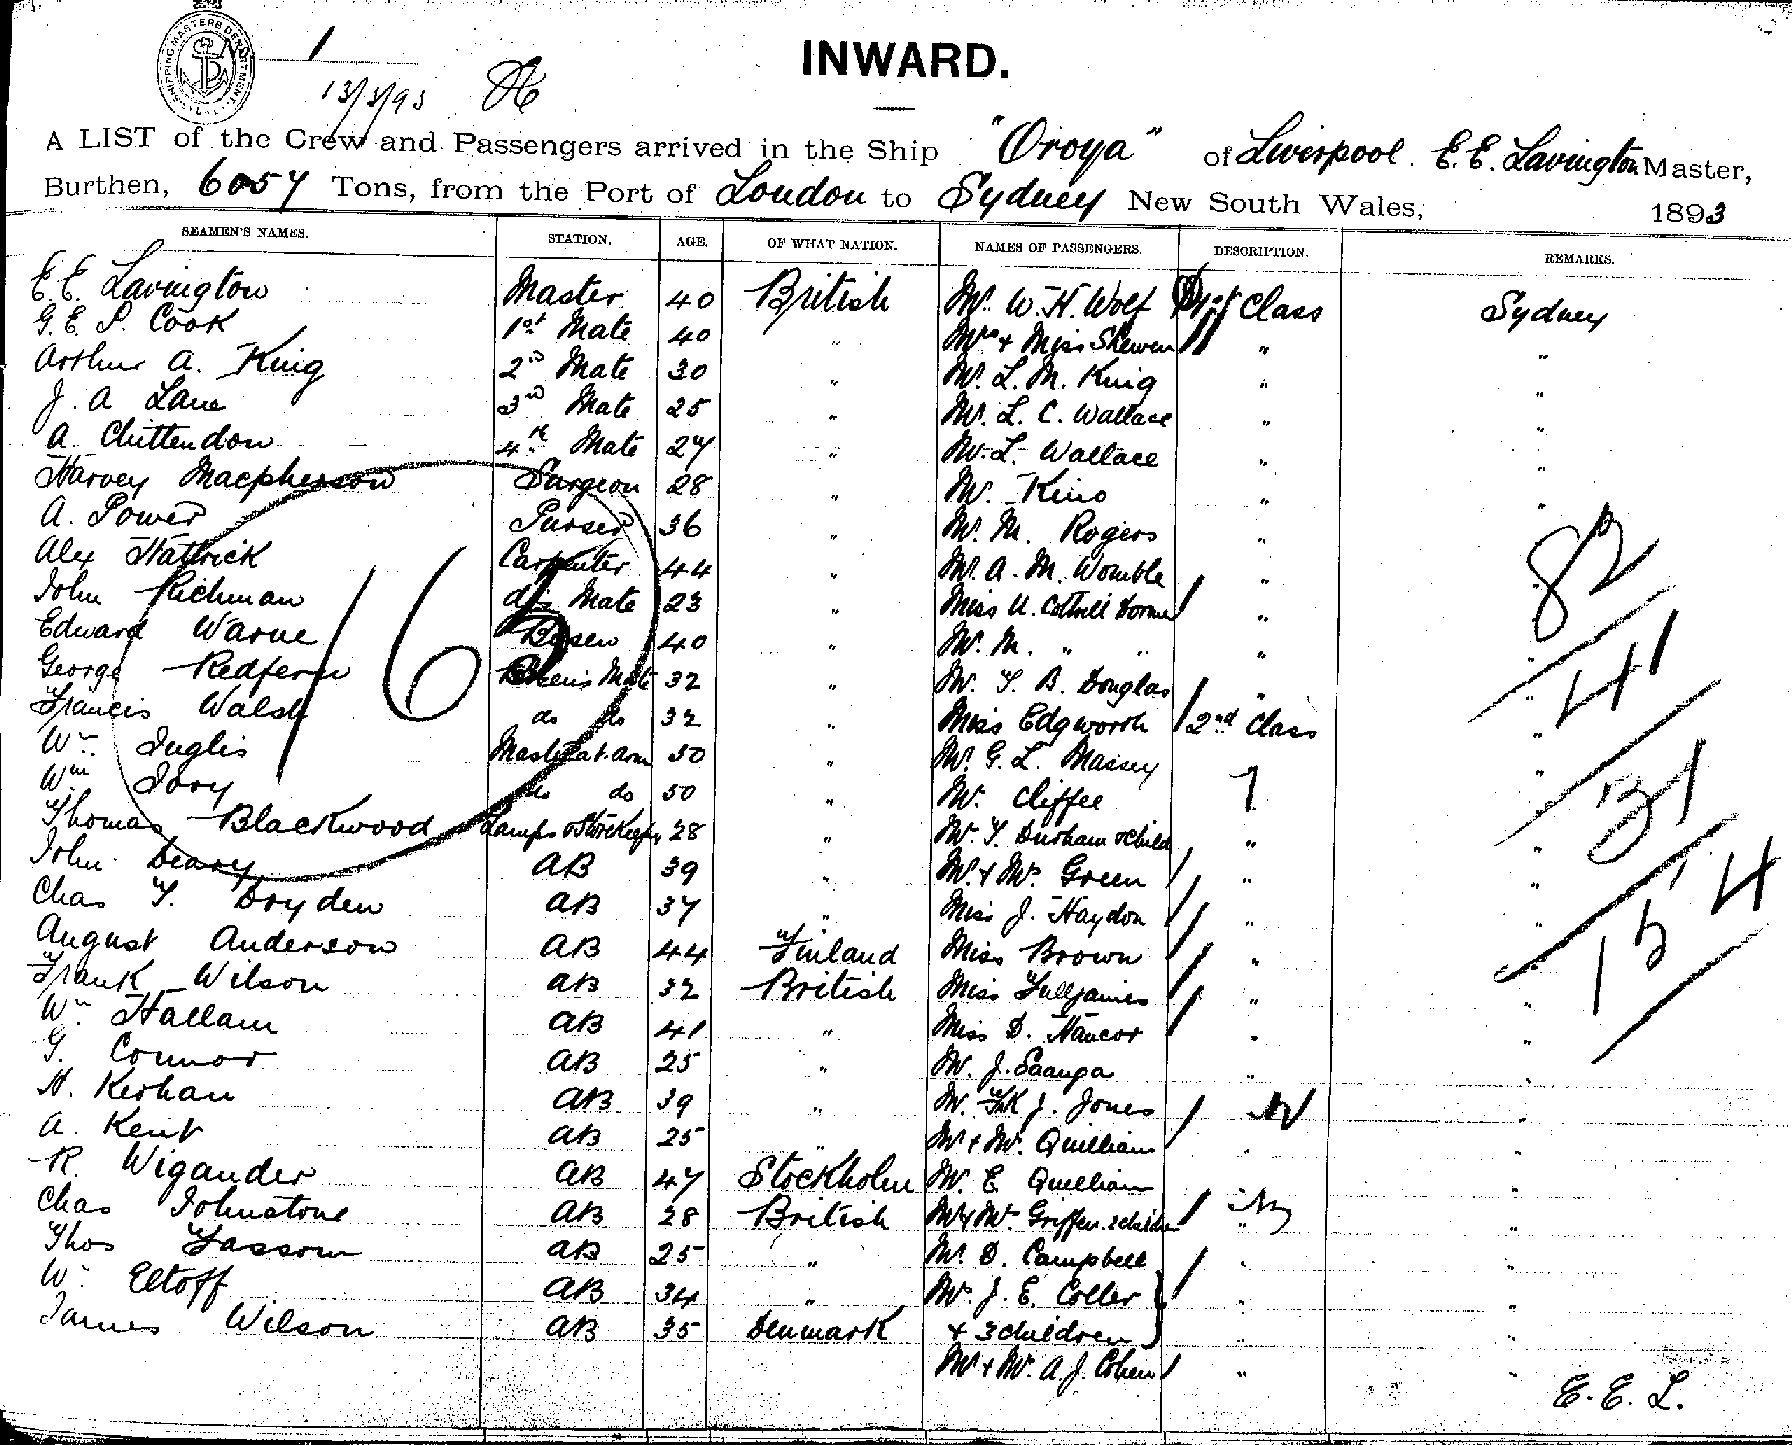 INWARD.
1
13/3/93
A LIST of the Crew and Passengers arrived in the Ship "Oroya" of Liverpool. E. E. Lavington Master,
Burthen, 6057 Tons, from the Port of London to Sydney New South Wales, 1893
SEAMEN'S NAMES. STATION. AGE. OF WHAT NATION. NAMES OF PASSENGERS. DESCRIPTION. REMARKS.
E. E. Lavington Master 40 British Mr. W. H. Wolf 1st Class Sydney
G. E. P. Cook 1st Mate 40 " Mrs & Miss Skewen " "
Arthur A. King 2nd Mate 30 " Mr. L. M. King " "
J. A Lane 3rd Mate 25 " Mr. L. C. Wallace " "
A. Chittendon 4th Mate 27 " Mr. L. Wallace " "
Harvey Macpherson Surgeon 28 " Mr. Kino " "
A. Power Purser 36 " Mr. M. Rogers "
Alex Hattrick Carpenter 44 " Mr. A. M. Womble " 82
John Richman do Mate 23 " Miss U. Cottrill Dormer "
Edward Warne Bosen 40 " Mr. M. " " " "
George Redfern Bosens Mate 32 " Mr. T. B. Douglas " " 41
Francis Walsh do do 32 " Miss Edgworth 2nd Class "
Wm Inglis Master at arms 50 " Mr. G. L. Massey "
Wm Ivory do do 50 " Mr. Cliffee 31
Thomas Blackwood Lamps & Storekeeper 28 " Mr. T. Durham & Child " "
John Deary AB 39 " Mr. & Mrs. Green " "
Chas T. Dryden AB 37 " Miss J. Haydon " 154
August Anderson AB 44 Finland Miss Brown "
Frank Wilson AB 32 British Miss Fulljames " "
Wm Hallam AB 41 " Miss D. Hancor " "
G. Connor AB 25 " Mr. J. Saanga " "
H. Kerhan AB 39 " Mr. J. Jones "
A. Kent AB 25 " Mr & Mrs. Quilliam " "
R. Wigander AB 47 Stockholm Mr. E Quilliam "
Chas Johnstone AB 28 British Mr & Mrs. Griffen " "
Thos Fassom AB 25 " Mr. D. Campbell " "
W. Eltoff AB 34 " Mr. J. E. Coller " "
James Wilson AB 35 Denmark & 3 children " "
Mr & Mrs. A. J. Cohen "
E. E. L.
16